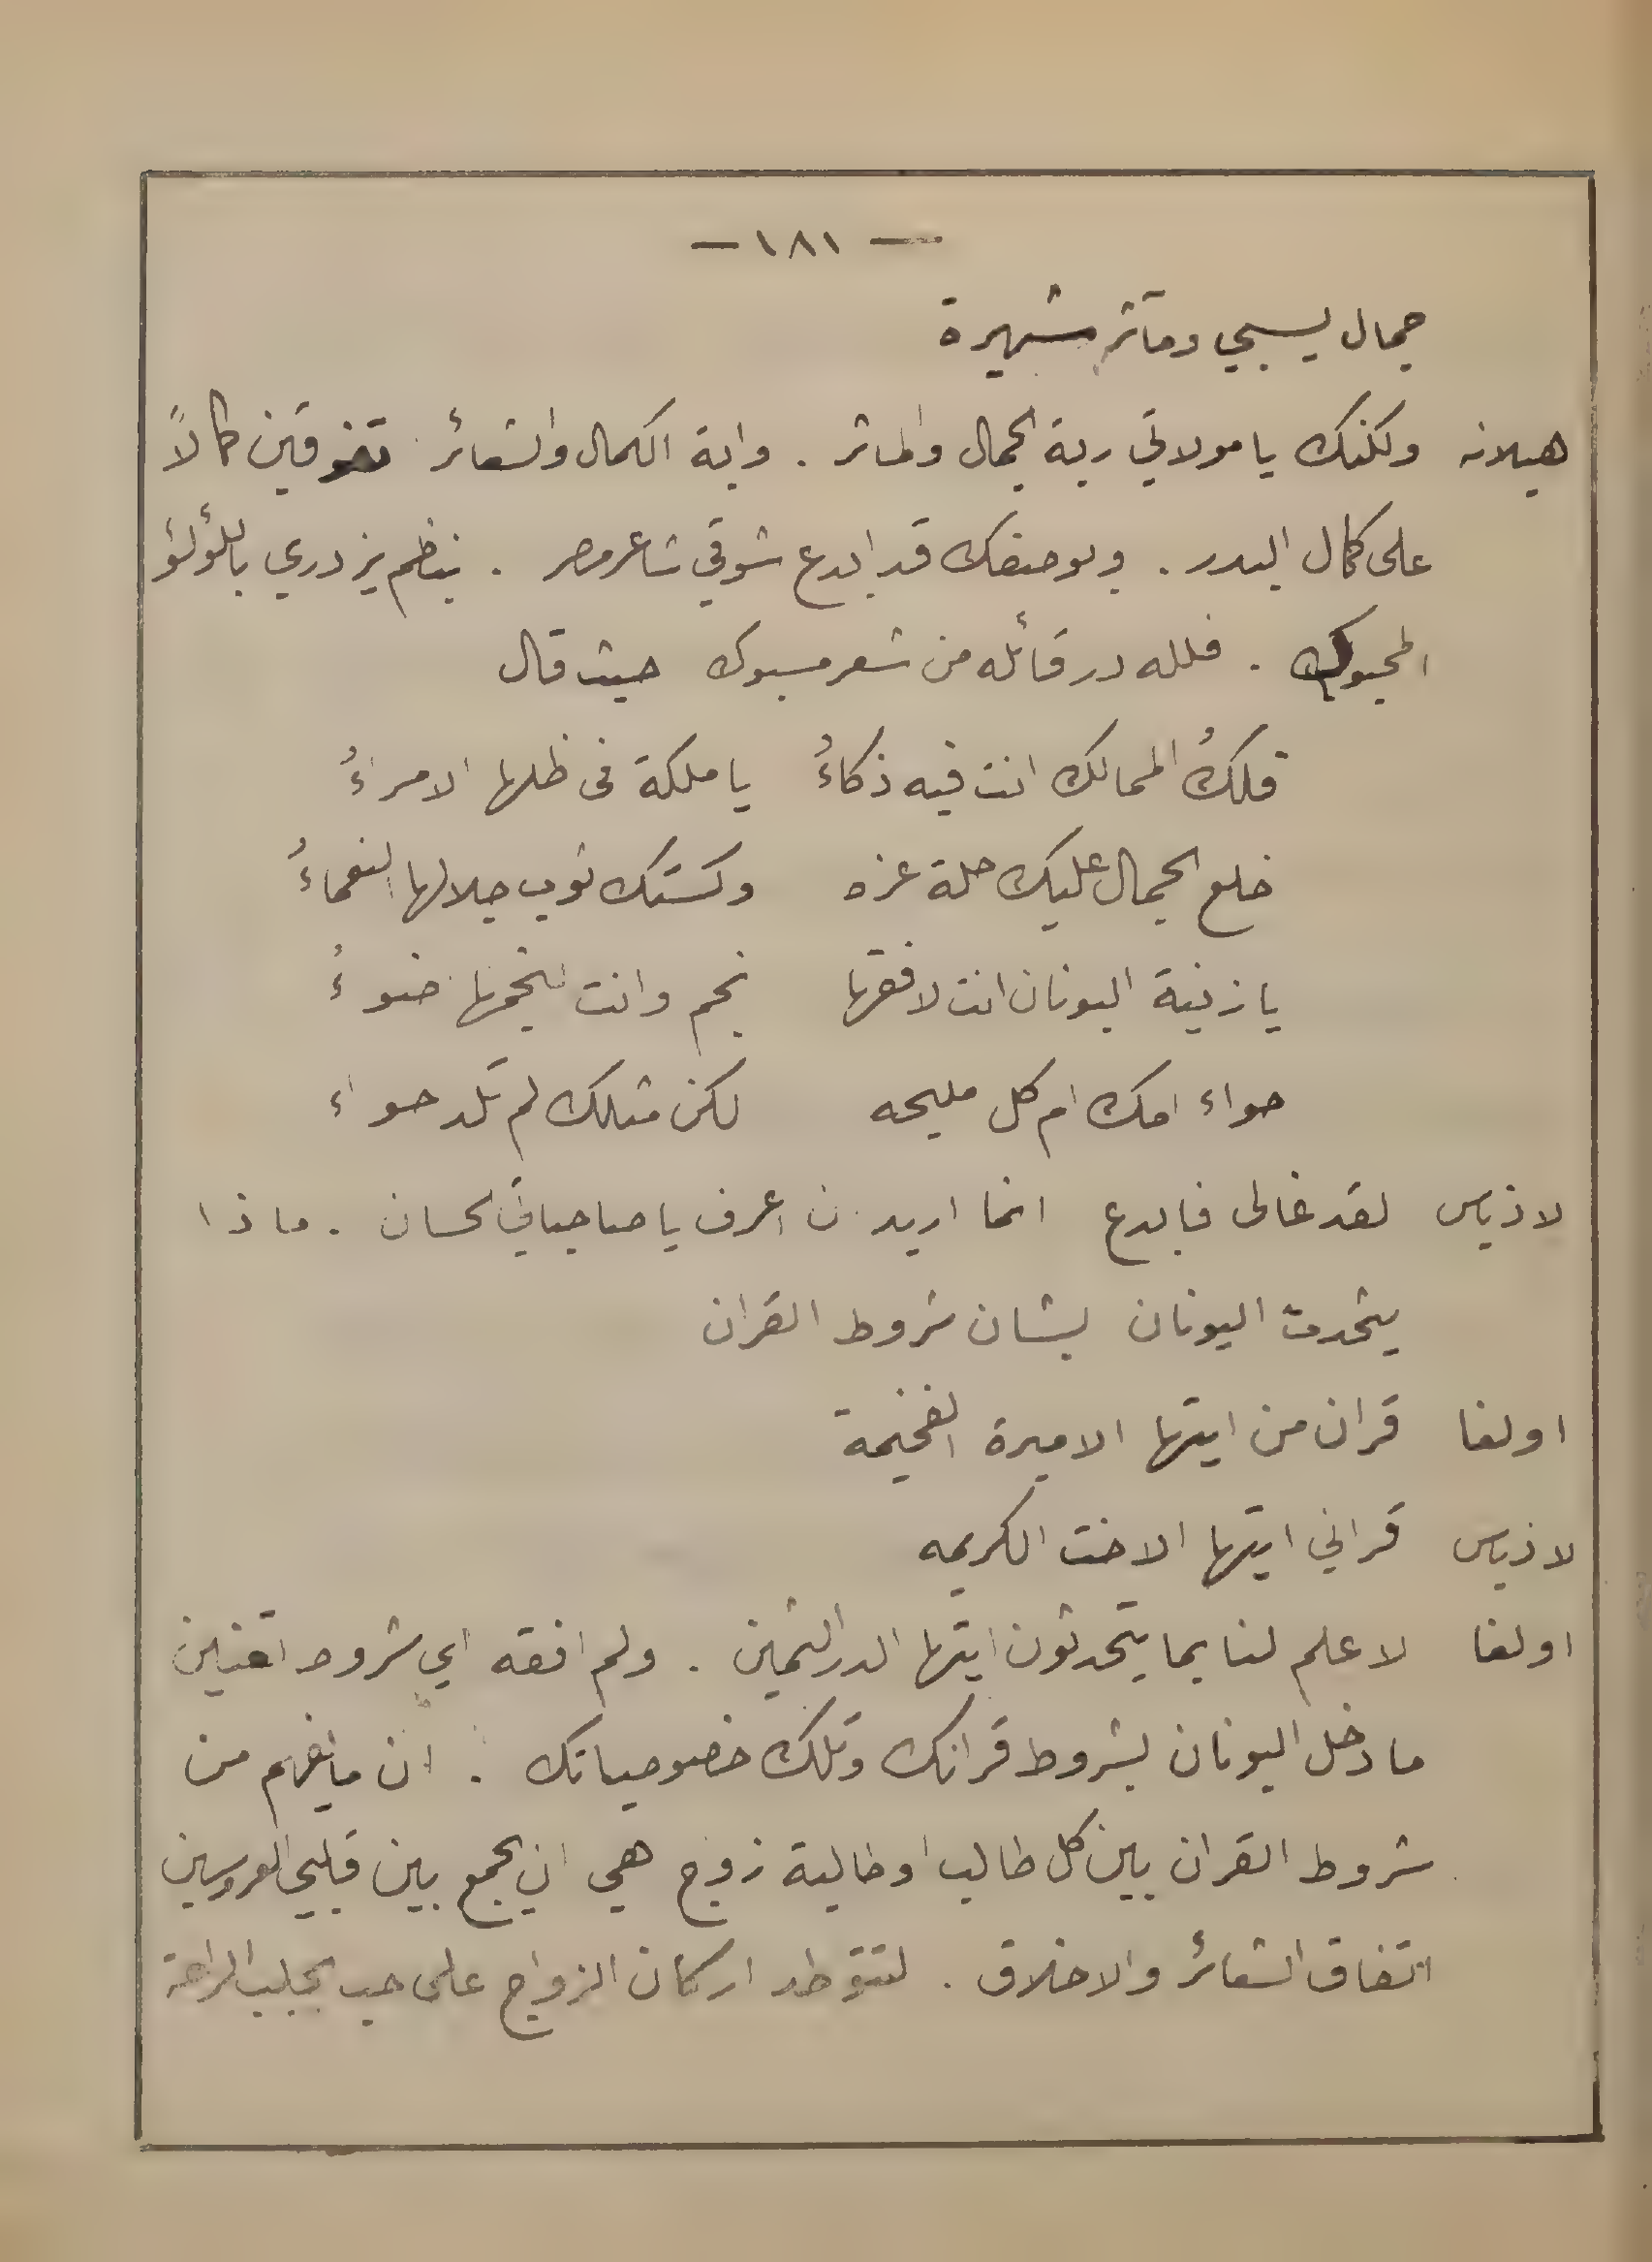 — ١٨١ —
جمال يسبي ومآثر شهيرة
هيلانه ولكنك يا مولاتي ربة الجمال والماثر . واية الكمال والشعائر تفوقين كمالاً
على كمال البدر . وبوصفك قد ابدع شوقي شاعر مصر . بنظم يزدري باللؤلؤ
المحبوك . فلله در قائله من شعر مسبوك حيث قال
فلكُ الممالك انت فيه ذكاءُ يا ملكة فى ظلها الامراءُ
خلع الجمال عليك حلة عزه وكستك ثوب جلالها النعماءُ
يا زينة اليونان انت لافقها نجم وانت لنجمها ضوءُ
حواء امك ام كل مليحه لكن مثلك لم تلد حواء
لاذيس لقد غالى فابدع انما اريد ان اعرف يا صاحباتي الحسان . ماذا
يتحدث اليونان بشان شروط القران
اولغا قران من ايتها الاميرة الفخيمة
لاذيس قراني ايتها الاخت الكريمه
اولغا لا علم لنا بما يتحدثون ايتها الدر الثمين . ولم افقه اي شروط تعنين
ما دخل اليونان بشروط قرانك وتلك خصوصياتك . ان ما نفهم من
شروط القران بين كل طالب او طالبة زوج هي ان يجمع بين قلبي العروسين
اتفاق الشعائر والاخلاق . لتتوطد اركان الزواج على حب يجلب الراحة